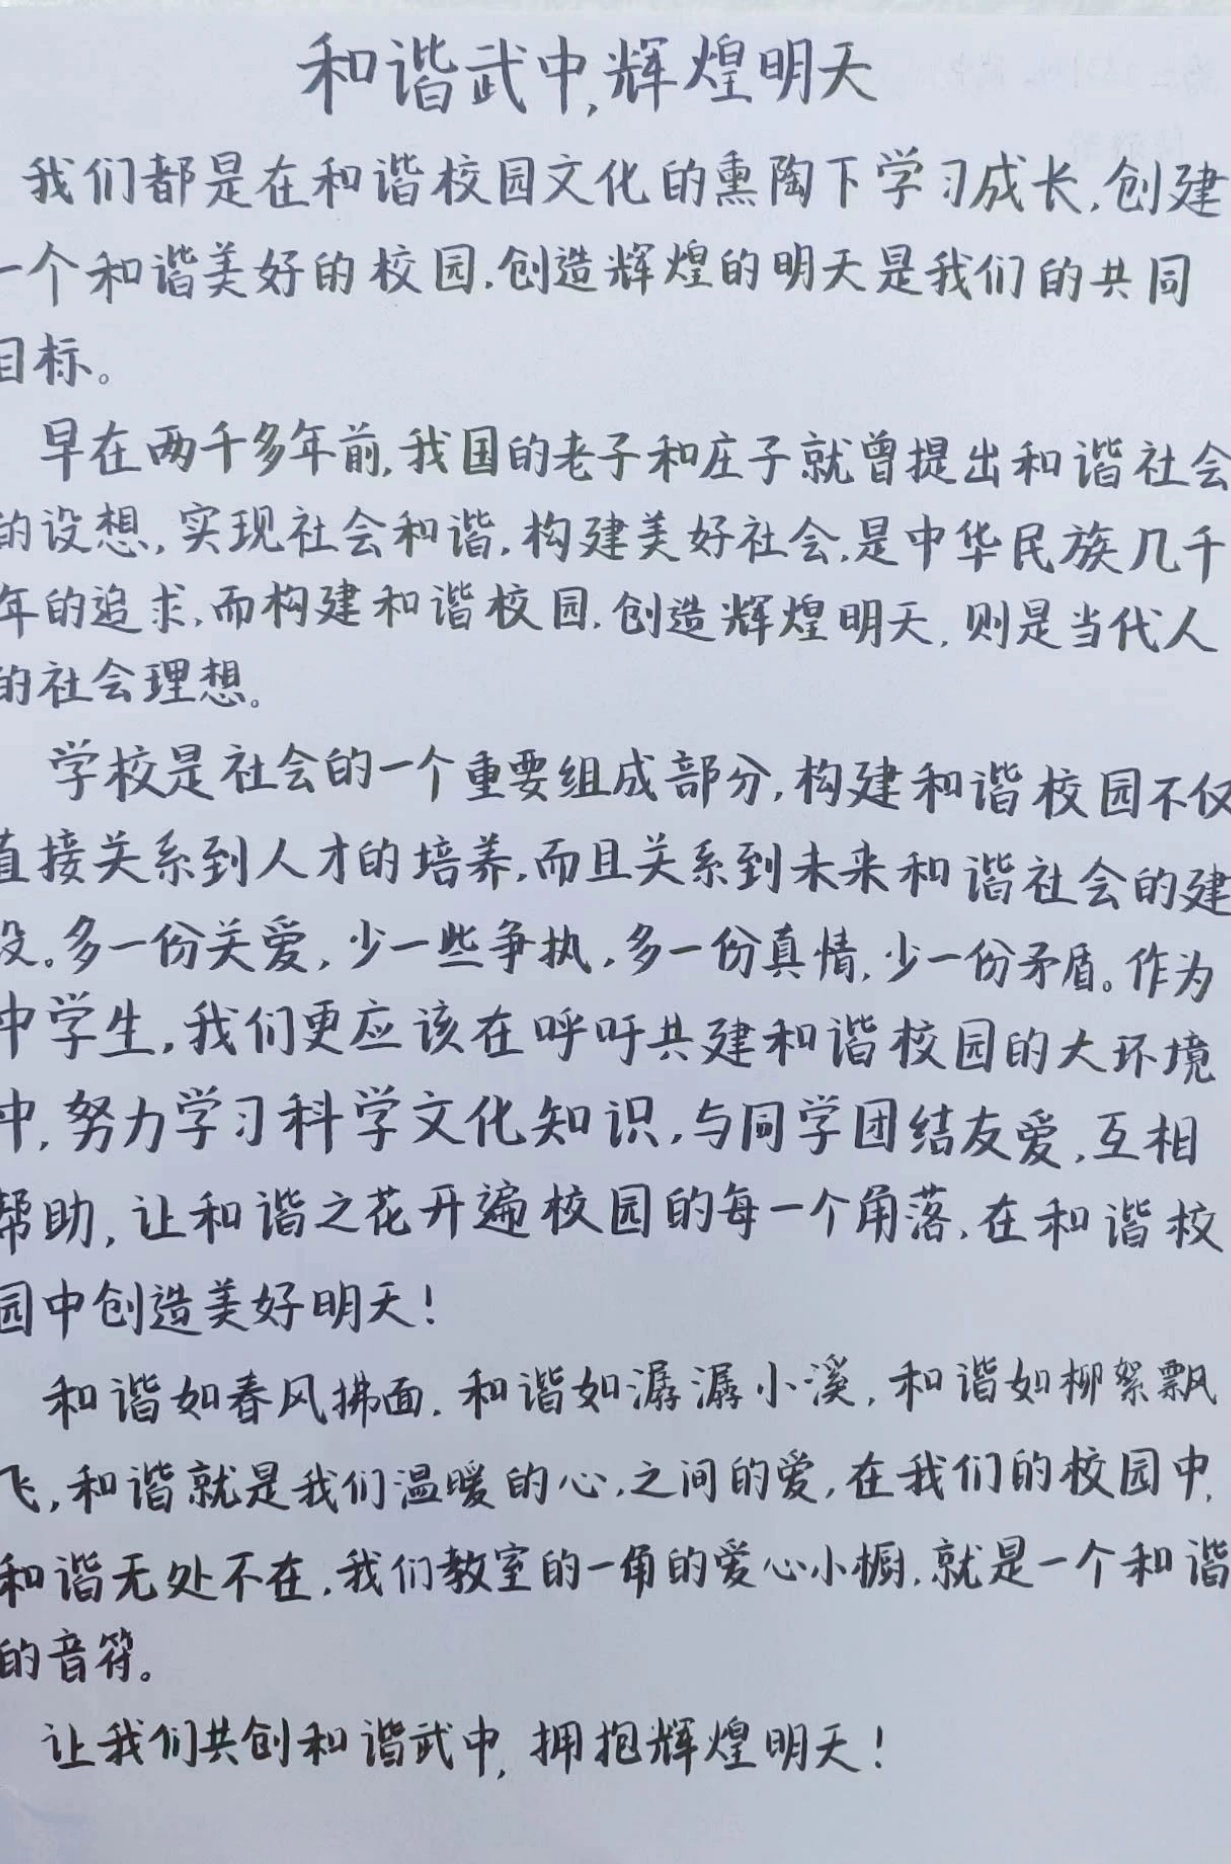 和谐武中,辉煌明天
我们都是在和谐校园文化的熏陶下学习成长,创建
一个和谐美好的校园.创造辉煌的明天是我们的共同
目标。
早在两千多年前,我国的老子和庄子就曾提出和谐社会
的设想,实现社会和谐,构建美好社会,是中华民族几千
年的追求,而构建和谐校园.创造辉煌明天,则是当代人
的社会理想。
学校是社会的一个重要组成部分,构建和谐校园不仅
直接关系到人才的培养,而且关系到未来和谐社会的建
设。多一份关爱,少一些争执,多一份真情,少一份矛盾。作为
中学生,我们更应该在呼吁共建和谐校园的大环境
中,努力学习科学文化知识,与同学团结友爱,互相
帮助,让和谐之花开遍校园的每一个角落,在和谐校
园中创造美好明天!
和谐如春风拂面.和谐如潺潺小溪,和谐如柳絮飘
飞,和谐就是我们温暖的心,之间的爱,在我们的校园中,
和谐无处不在,我们教室的一角的爱心小橱,就是一个和谐
的音符。
让我们共创和谐武中,拥抱辉煌明天!